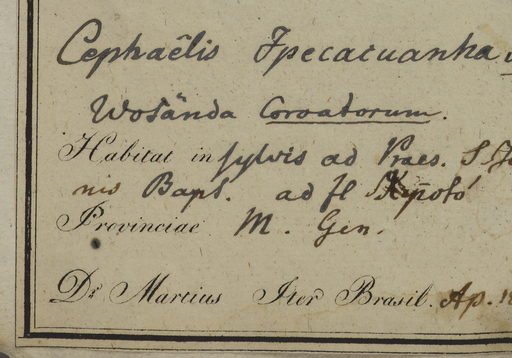 Cephaëlis Ipecacuanha
Wosända Coroatorum.
Habitat in sylvis ad Praes. S. Jo
nis Bapt. ad fl Xipotó
Provinciae M. Gen.
Dr Martius Iter Brasil. Ap. 18